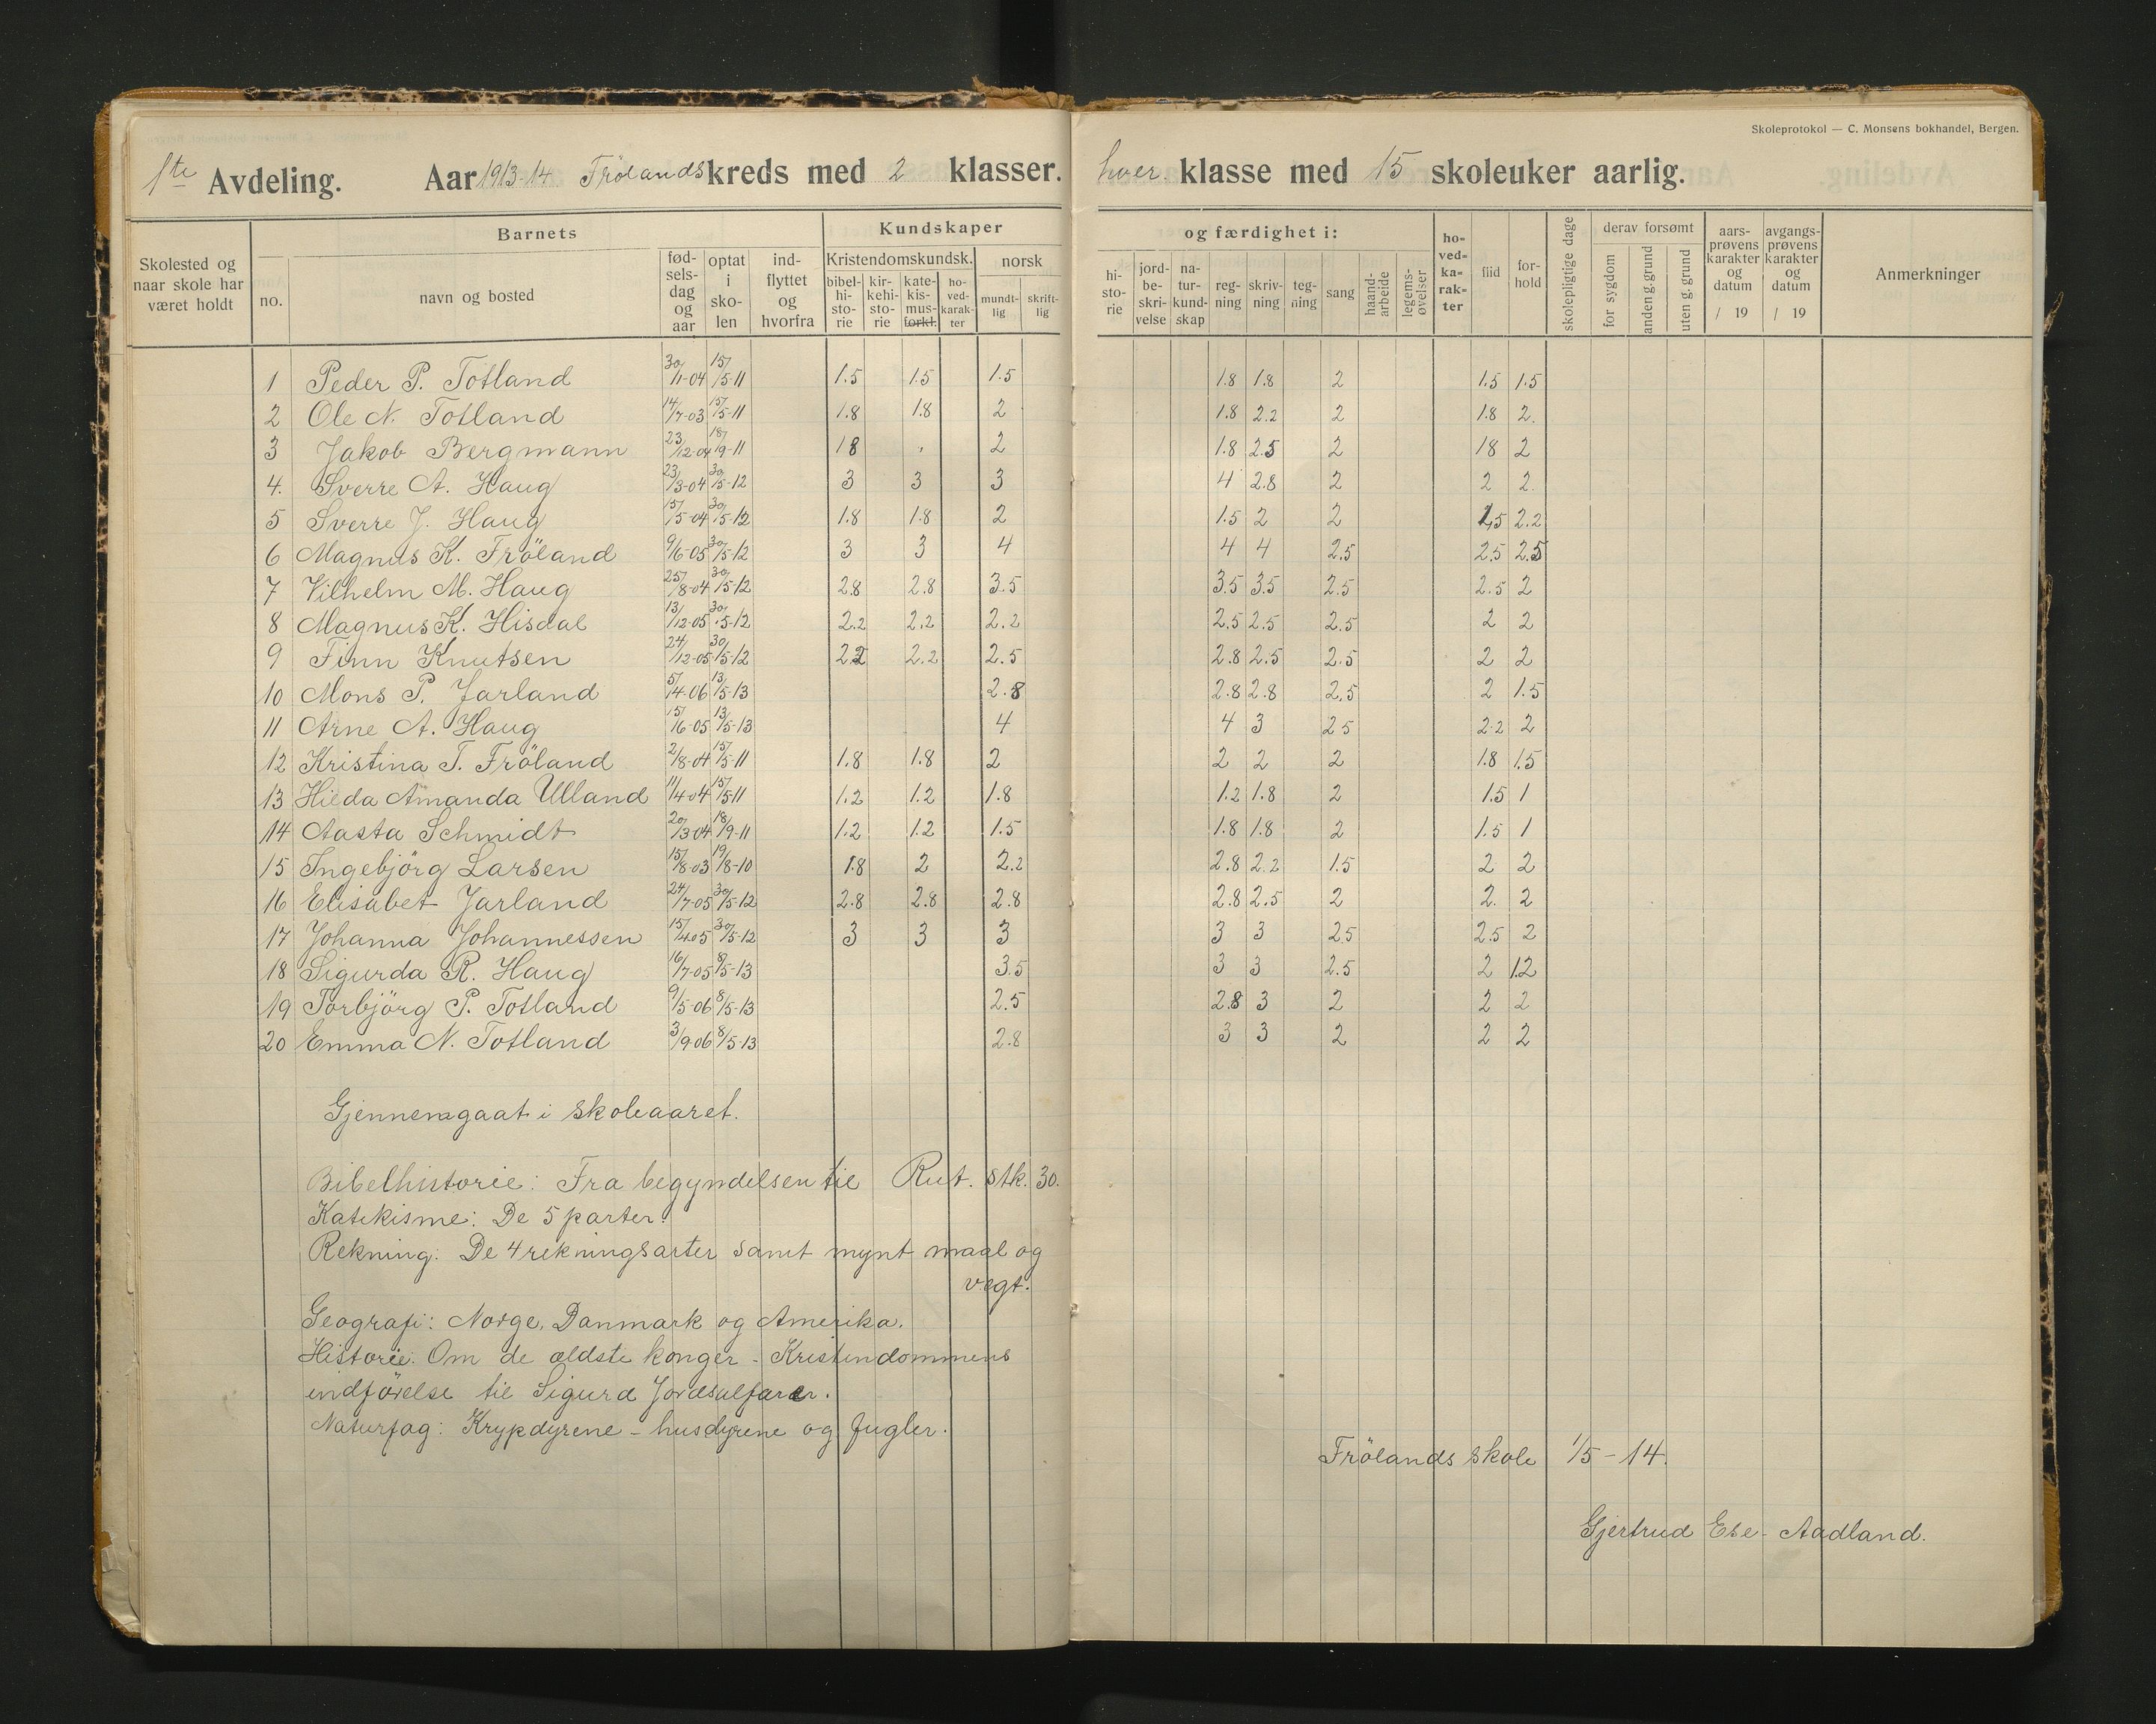 Skoleprotokol — C. Monsens bokhandel, Bergen.
1ste Avdeling. Aar 1913-14 Frölands kreds med 2 klasser. hver klasse med 15 skoleuker aarlig.
Skolested og naar skole har været holdt
Barnets
no. navn og bosted
fød-sels-dag og aar
optat i sko-len
ind-flyttet og hvorfra
Kundskaper
Kristendomskundsk.
bibel-hi-sto-rie
kir-kehi-sto-rie
kate-kis-mus-forkl.
ho-ved-karak-ter
norsk
mundt-lig
skrift-lig
og færdighet i:
hi-sto-rie
jord-be-skri-velse
na-tur-kund-skap
reg-ning
skriv-ning
teg-ning
sang
haand-arbeide
legems-øvelser
ho-ved-ka-rak-ter
flid
for-hold
skolepligtige dage
derav forsømt
for sygdom
anden g. grund
uten g. grund
aars-prøvens karakter og datum / 19
avgangs-prøvens karakter og datum / 19
Anmerkninger
1 Peder P. Totland 30/11-04 15/5-11 1.5 1.5 1.5 1.8 1.8 2 1.5 1.5
2 Ole N. Totland 14/7-03 15/5-11 1.8 1.8 2 1.8 2.2 2 1.8 2.
3 Jakob Bergmann 23/12-04 18/9-11 18 2 1.8 2.5 2 18 2
4. Sverre A. Haug 23/3-04 30/5-12 3 3 3 4 2.8 2 2 2.
5 Sverre J. Haug 15/5-04 30/5-12 1.8 1.8 2 1.5 2 2 1,5 2.2
6 Magnus K. Fröland 9/6-05 30/5-12 3 3 4 4 4 2.5 2.5 2.5
7 Vilhelm M. Haug 25/8-04 30/5-12 2.8 2.8 3.5 3.5 3.5 2.5 2.5 2
8 Magnus K. Hisdal 13/12-05 30/5-12 2.2 2.2 2.2 2.5 2.5 2.5 2 2
9 Finn Knutsen 24/12-05 30/5-12 2.2 2.2 2.5 2.8 2.5 2.5 2 2
10 Mons P. Jarland 5/4-06 13/5-13 2.8 2.8 2.8 2.5 2 1.5
11 Arne A. Haug 13/5-13 4 4 3 2 5 2.2 2
12 Kristina T. Fröland 2/8-04 15/5-11 1.8 1.8 2 2 2 2 1.8 1.5
13 Hilda Amanda Ulland 11/4-04 15/5-11 1.2 1.2 1.8 1.2 1.8 2 1.5 1
14 Aasta Schmidt 20/3-04 18/9-11 1.2 1.2 1.5 1.8 1.8 2 1.5 1
15 Ingebjörg Larsen 15/8-03 19/8-10 1.8 2 2.2 2.8 2.2 1.5 2 2
16 Elisabet Jarland 24/7-05 30/5-12 2.8 2.8 2.8 2.8 2.5 2 2. 2
17 Johanna Johannessen 15/4-05 30/5-12 3 3 3 3 3 2.5 2.5 2
18 Sigurda R. Haug 16/7-05 8/5-13 3.5 3 3 2.5 2 1.2
19 Torbjörg P. Totland 9/5-06 8/5-13 2.5 2.8 3 2 2 2
20 Emma N. Totland 3/9-06 8/5-13 2.8 3 3 2 2 2
Gjennemgaat i skoleaaret.
Bibelhistorie: Fra begyndelsen til Rut. stk. 30.
Katekisme: De 5 parter.
Rekning: De 4 rekningsarter samt mynt maal og
vegt.
Geografi: Norge, Danmark og Amerika.
Historie: Om de ældste konger - Kristendommens
indförelse til Sigurd Jordsalfarer.
Naturfag: Krypdyrene - husdyrene og fugler.
Frölands skole 1/5-14.
Gjertrud Ese-Aadland.